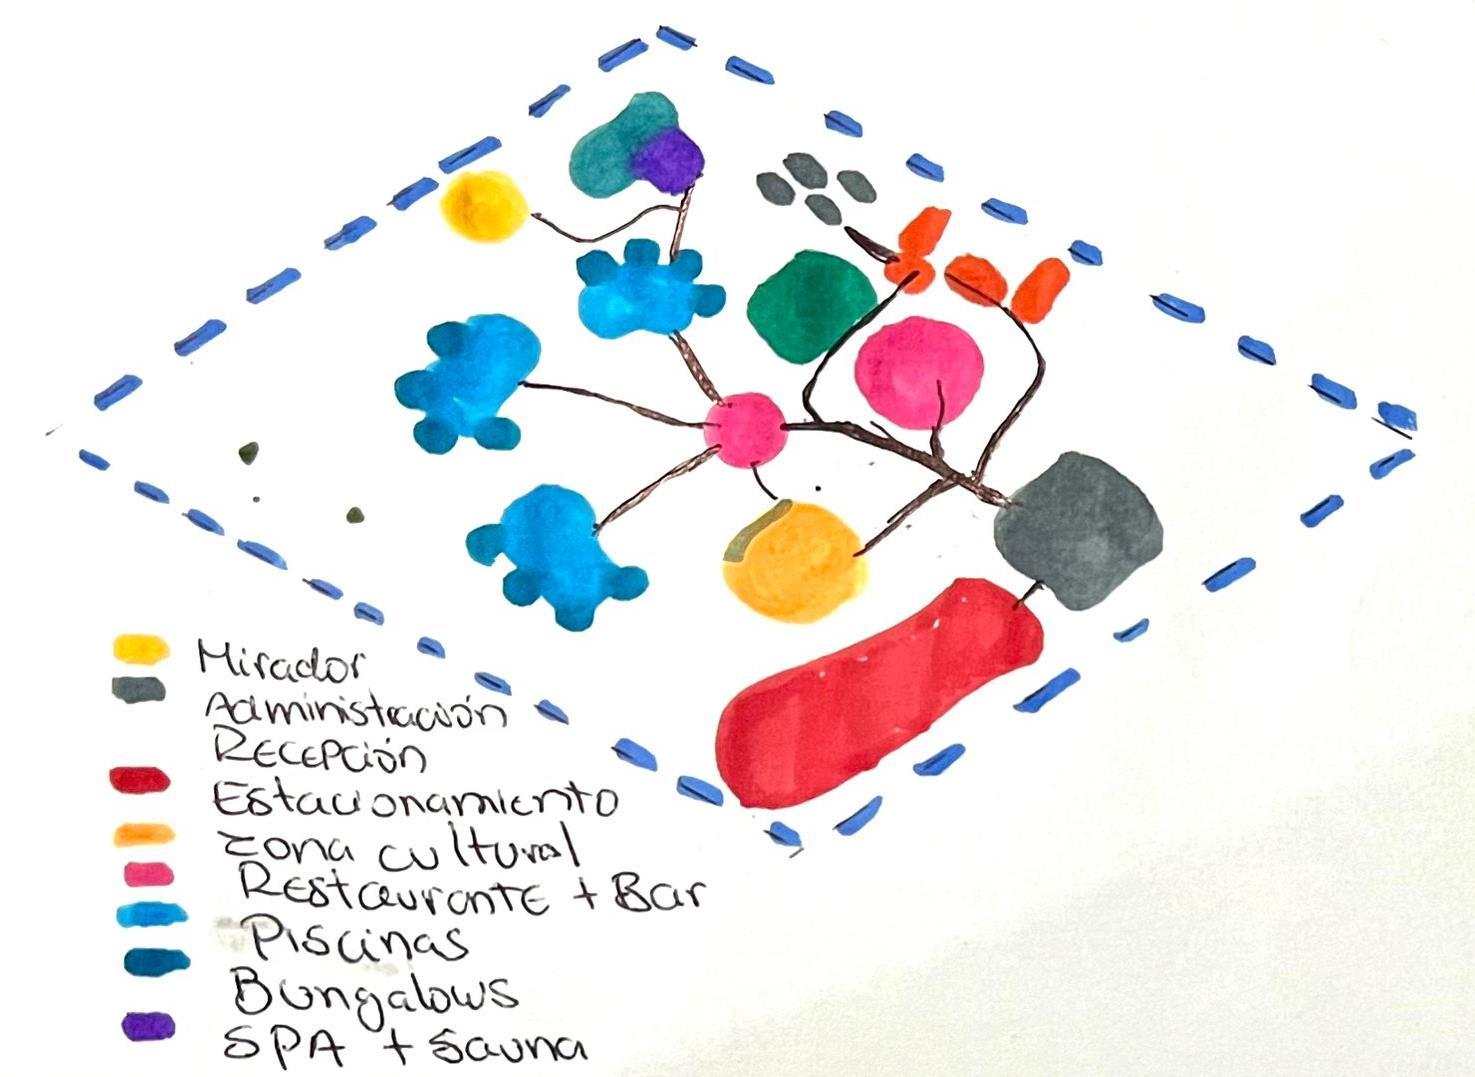 Mirador
Administración
Recepción
Estacionamiento
Zona cultural
Restaurante + Bar
Piscinas
Bungalows
SPA + Sauna